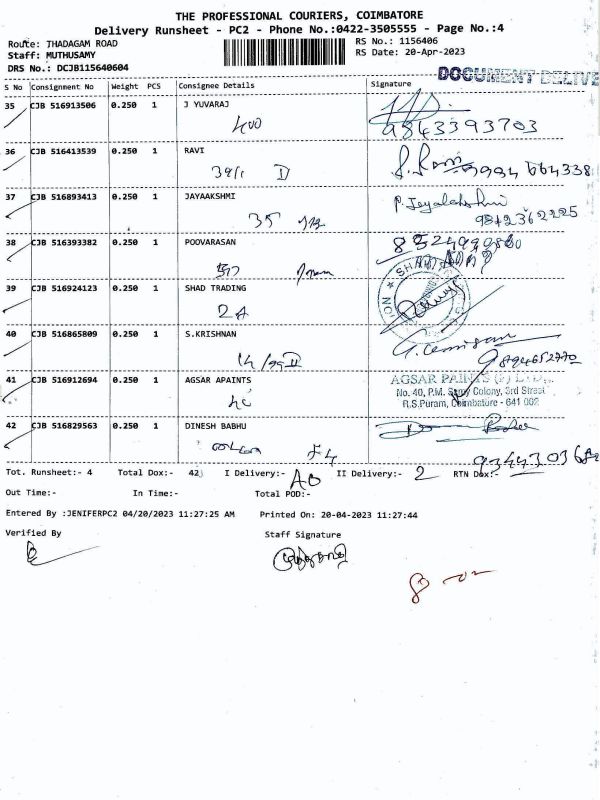 THE PROFESSIONAL COURIERS, COIMBATORE
Delivery Runsheet - PC2 - Phone No.:0422-3505555 - Page No.:4
Route: THADAGAM ROAD RS No.: 1156406
Staff: MUTHUSAMY RS Date: 20-Apr-2023
DRS No.: DCJB115640604 DOCUMENT DELIVE
S No Consignment No Weight PCS Consignee Details Signature
35 CJB 516913506 0.250 1 J YUVARAJ
400 9843393703
36 CJB 516413539 0.250 1 RAVI
39/1 II
37 CJB 516893413 0.250 1 JAYAAKSHMI P. Jeyalakshmi
35 9842362225
38 CJB 516393382 0.250 1 POOVARASAN
39 CJB 516924123 0.250 1 SHAD TRADING
2A
40 CJB 516865809 0.250 1 S.KRISHNAN
14/99 II 9894652770
41 CJB 516912694 0.250 1 AGSAR APAINTS AGSAR PAINTS (P) LTD.,
No. 40, P.M. Samy Colony, 3rd Street
R.S.Puram, Coimbatore - 641 002
42 CJB 516829563 0.250 1 DINESH BABHU
54
Tot. Runsheet:- 4 Total Dox:- 42 I Delivery:- 40 II Delivery:- 2 RTN Dox:-
Out Time:- In Time:- Total POD:-
Entered By :JENIFERPC2 04/20/2023 11:27:25 AM Printed On: 20-04-2023 11:27:44
Verified By Staff Signature